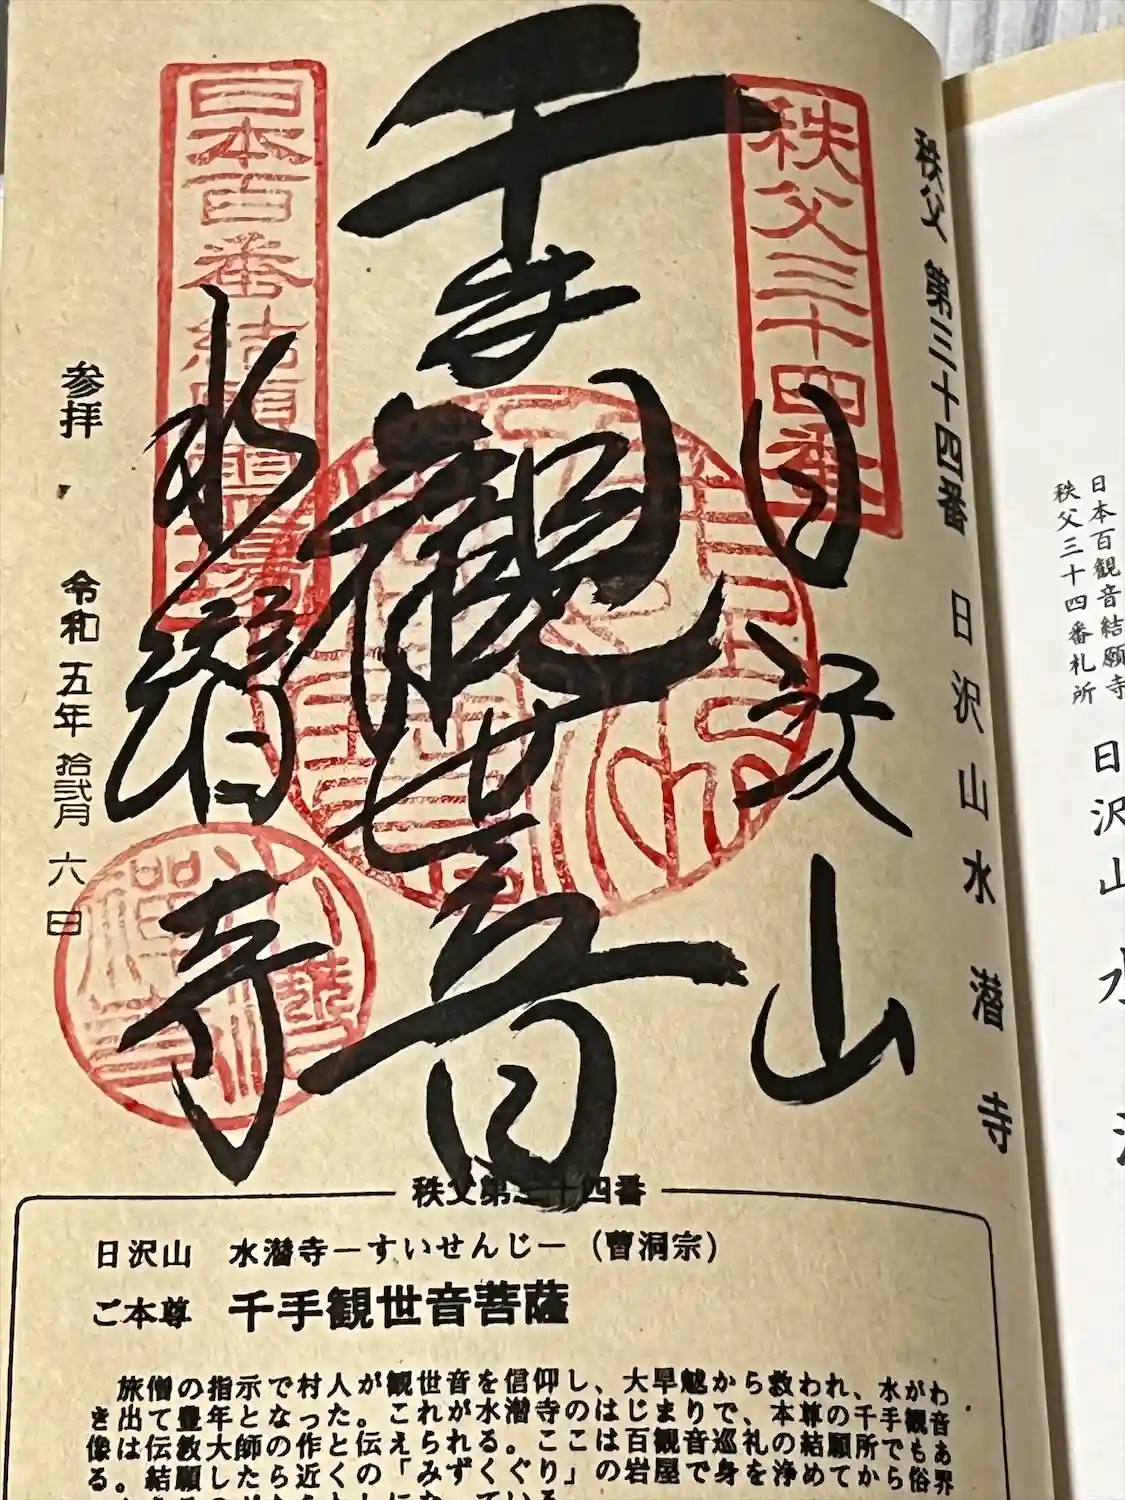 日本百観音結願寺
秩父三十四番札所
日沢山 水
秩父 第三十四番 日沢山水潜寺
秩父三十四番
日沢山
千手観世音
日本百番結願霊場
水潜寺
参拝 令和五年拾弐月六日
秩父第三十四番
日沢山 水潜寺―すいせんじ―(曹洞宗)
ご本尊 千手観世音菩薩
旅僧の指示で村人が観世音を信仰し、大旱魃から救われ、水がわ
き出て豊年となった。これが水潜寺のはじまりで、本尊の千手観音
像は伝教大師の作と伝えられる。ここは百観音巡礼の結願所でもあ
る。結願したら近くの「みずくぐり」の岩屋で身を浄めてから俗界